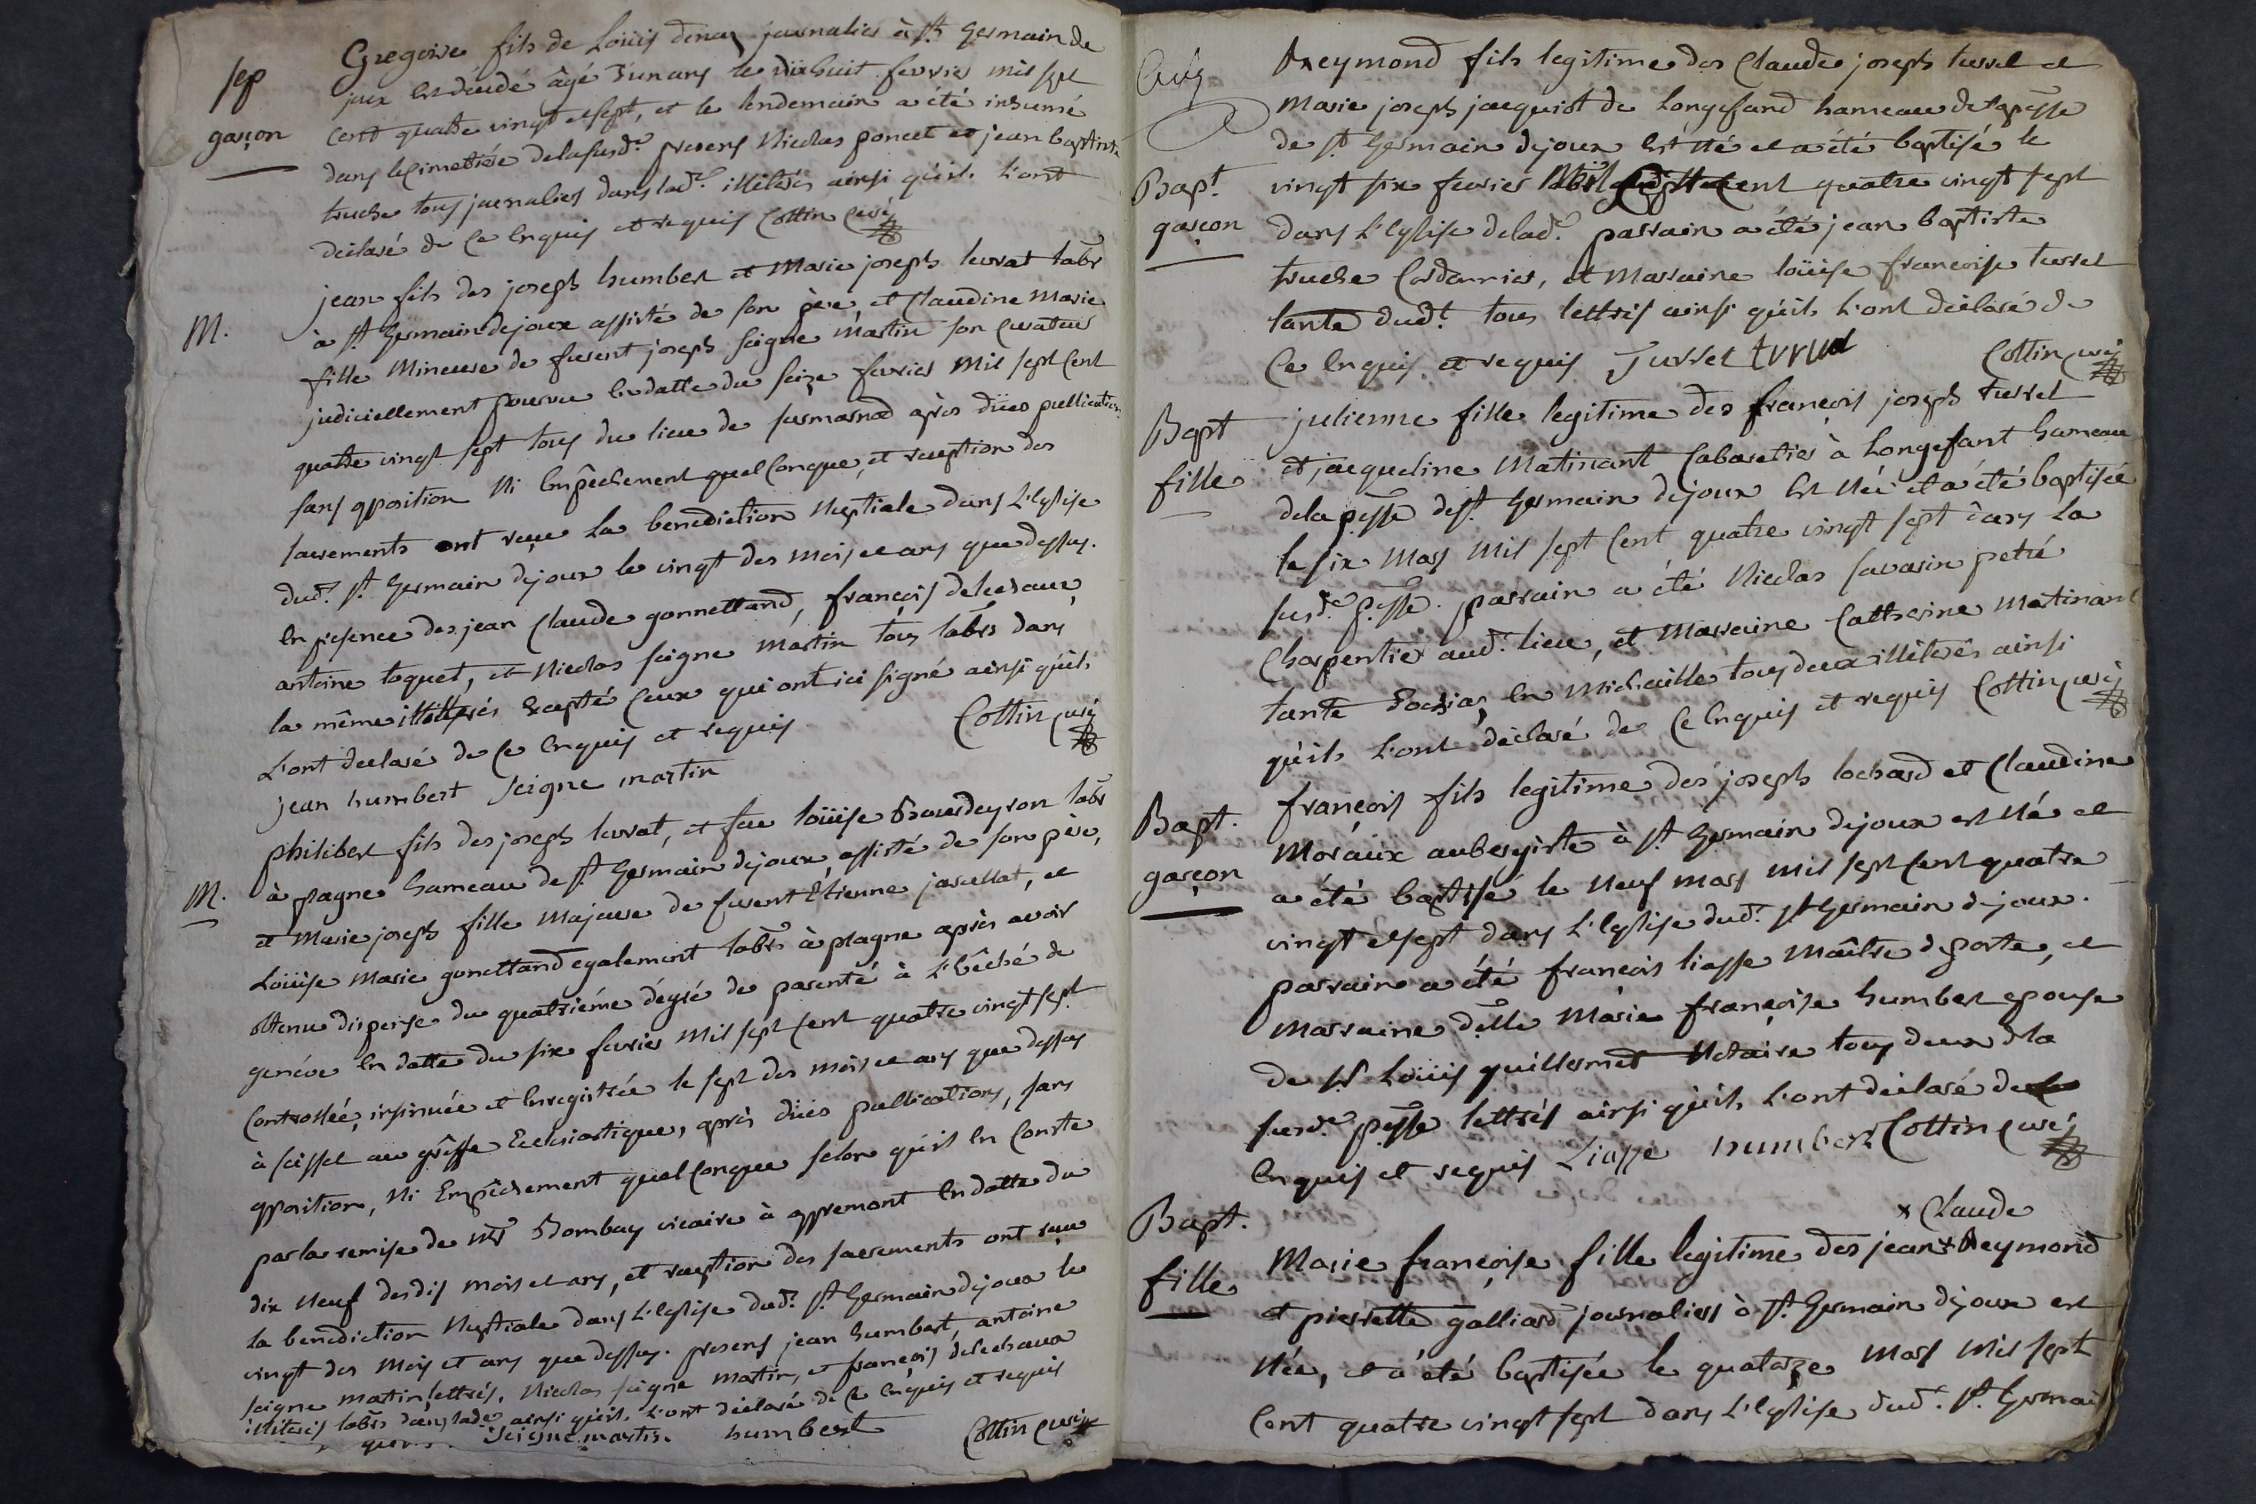 Sep
garçon
Gregoire fils de Loüis journalier à St Germain de
joux est décédé âgé d'un ans le dixhuit fevrier mil sept
cent quatre vingt et sept, et le lendemain a été inhumé
dans le cimetière de la susde. presens Nicolas poncet et jean baptiste
truche tous journaliers dans lade. illiterés ainsi qu'ils l'ont
déclaré de ce enquis et requis Cottin curé
M.
jean fils des joseph humbert et Marie joseph levrat labrs
à St Germain dejoux assisté de son père, et Claudine Marie
fille Mineure de furent joseph seigne martin son curateur
judiciellement pourvu en datte du seize fevrier mil sept cent
quatre vingt sept tous du lieu de après dües publications
sans opposition Ni Empêchement quelconque, et reception des
sacrements ont reçu la benediction Nuptiale dans L'Eglise
dud. St Germain dejoux le vingt des mois et ans que dessus.
En presence des jean Claude gonnettand, françois delechaux,
antoine toquet, et Nicolas seigne martin tous labrs dans
la même illittérés Excepté ceux qui ont ici signé ainsi qu'ils
L'ont declaré de ce enquis et requis Cottin curé
jean humbert Seigne martin
M.
philibert fils des joseph levrat, et feu loüise Bourdeyron labrs
à plagne hameau de St Germain dejoux, assisté de son père,
et Marie joseph fille Majeure de furent Etienne jacellat, et
Loüise Marie gonettand egalement labrs à plagne après avoir
obtenu dispense du quatriéme degré de parenté à L'Evêché de
genéve En datte du six fevrier mil sept cent quatre vingt sept
Controllée, insinuée et Enregistrée le sept des mois et ans que dessus
à seissel au grêffe Ecclesiastique, après düës publications, sans
opposition, Ni Empêchement quelconque selon qu'il En Conste
par la remise de Mr Bombay vicaire à appremont En datte du
dix Neuf desdis mois et ans, et reception des sacrements ont reçu
la benediction Nuptiale dans L'Eglise dud. St Germain dejoux le
vingt des Mois et ans que dessus. presens jean humbert, antoine
seigne martin lettrés, Nicolas seigne martin, et françois delechaux
illiterés labrs dans lade ainsi qu'ils l'ont déclaré de ce enquis et requis
Seigne martin humbert Cottin curé
Bapt.
garçon
Reymond fils legitime des Claude joseph turrel et
Marie joseph jacquiot de Longefand hameau de la psse
de St Germain dejoux Est Né et a été baptisé le
vingt six fevrier Mil sept cent quatre vingt sept
dans L'Eglise de lade. parrain a été jean baptiste
truche Cordonnier, et Marraine loüise françoise turrel
tante dud. tous lettrés ainsi qu'ils l'ont déclaré de
Ce Enquis et requis Turrel turrel Cottin curé
Bapt
fille
julienne fille legitime des françois joseph turrel
et jacqueline Matinant Cabaretier à Longefant hameau
dela psse de St Germain dejoux Est Née et a été baptisée
le six Mars Mil sept Cent quatre vingt sept dans la
susde psse. parrain a été Nicolas savarin petré
Charpentier aud. lieu, et Marraine Catherine Matinant
tante En Michaille tous deux illiterés ainsi
qu'ils l'ont déclaré de Ce Enquis et requis Cottin curé
Bapt.
garçon
françois fils legitime des joseph bochard et Claudine
Moraüx aubergiste à St Germain dejoux est Né et
a été baptisé le Neuf Mars Mil sept Cent quatre
vingt et sept dans L'Eglise dud. St Germain dejoux.
parrain a été françois liasse Maître de poste, et
marraine delle Marie françoise humbert epouse
de Sr Loüis guillermet Notaire tous deux de la
susde psse lettrés ainsi qu'ils L'ont déclaré de ce
Enquis et requis Liasse humbert Cottin curé
Bapt.
fille
x Claude
Marie françoise fille legitime des jean x Reymond
et pierrette galliard journaliers à St Germain dejoux est
Née, et a été baptisée le quatorze Mars Mil sept
Cent quatre vingt sept dans L'Eglise dud. St Germain